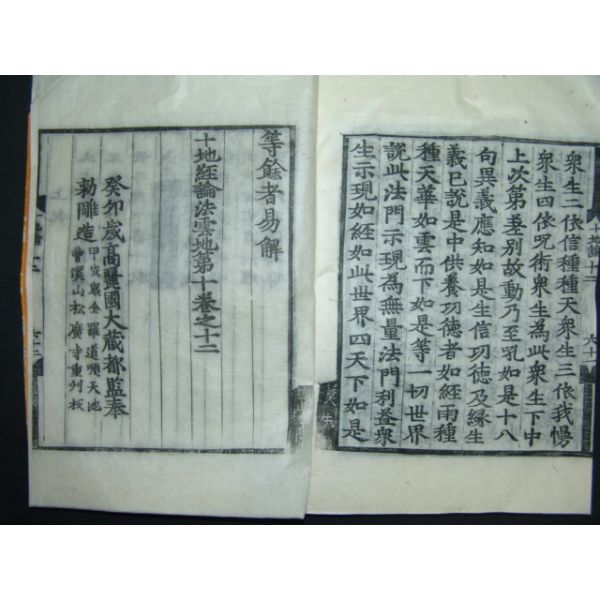 衆生二依信種種天衆生三依我慢
衆生四依呪術衆生為此衆生下中
上次第差別故動乃至吼如是十八
句異義應知如是生信功徳及縁生
義已說是中供養功徳者如經雨種
種天華如雲而下如是等一切世界
說此法門示現為無量法門利益衆
生示現如經如此世界四天下如是
等餘者易解
十地經論法雲地第十卷之十二
癸卯歳高麗國大蔵都監奉
勑雕造
甲戌嵗全羅道順天地
曹溪山松廣寺重刋板